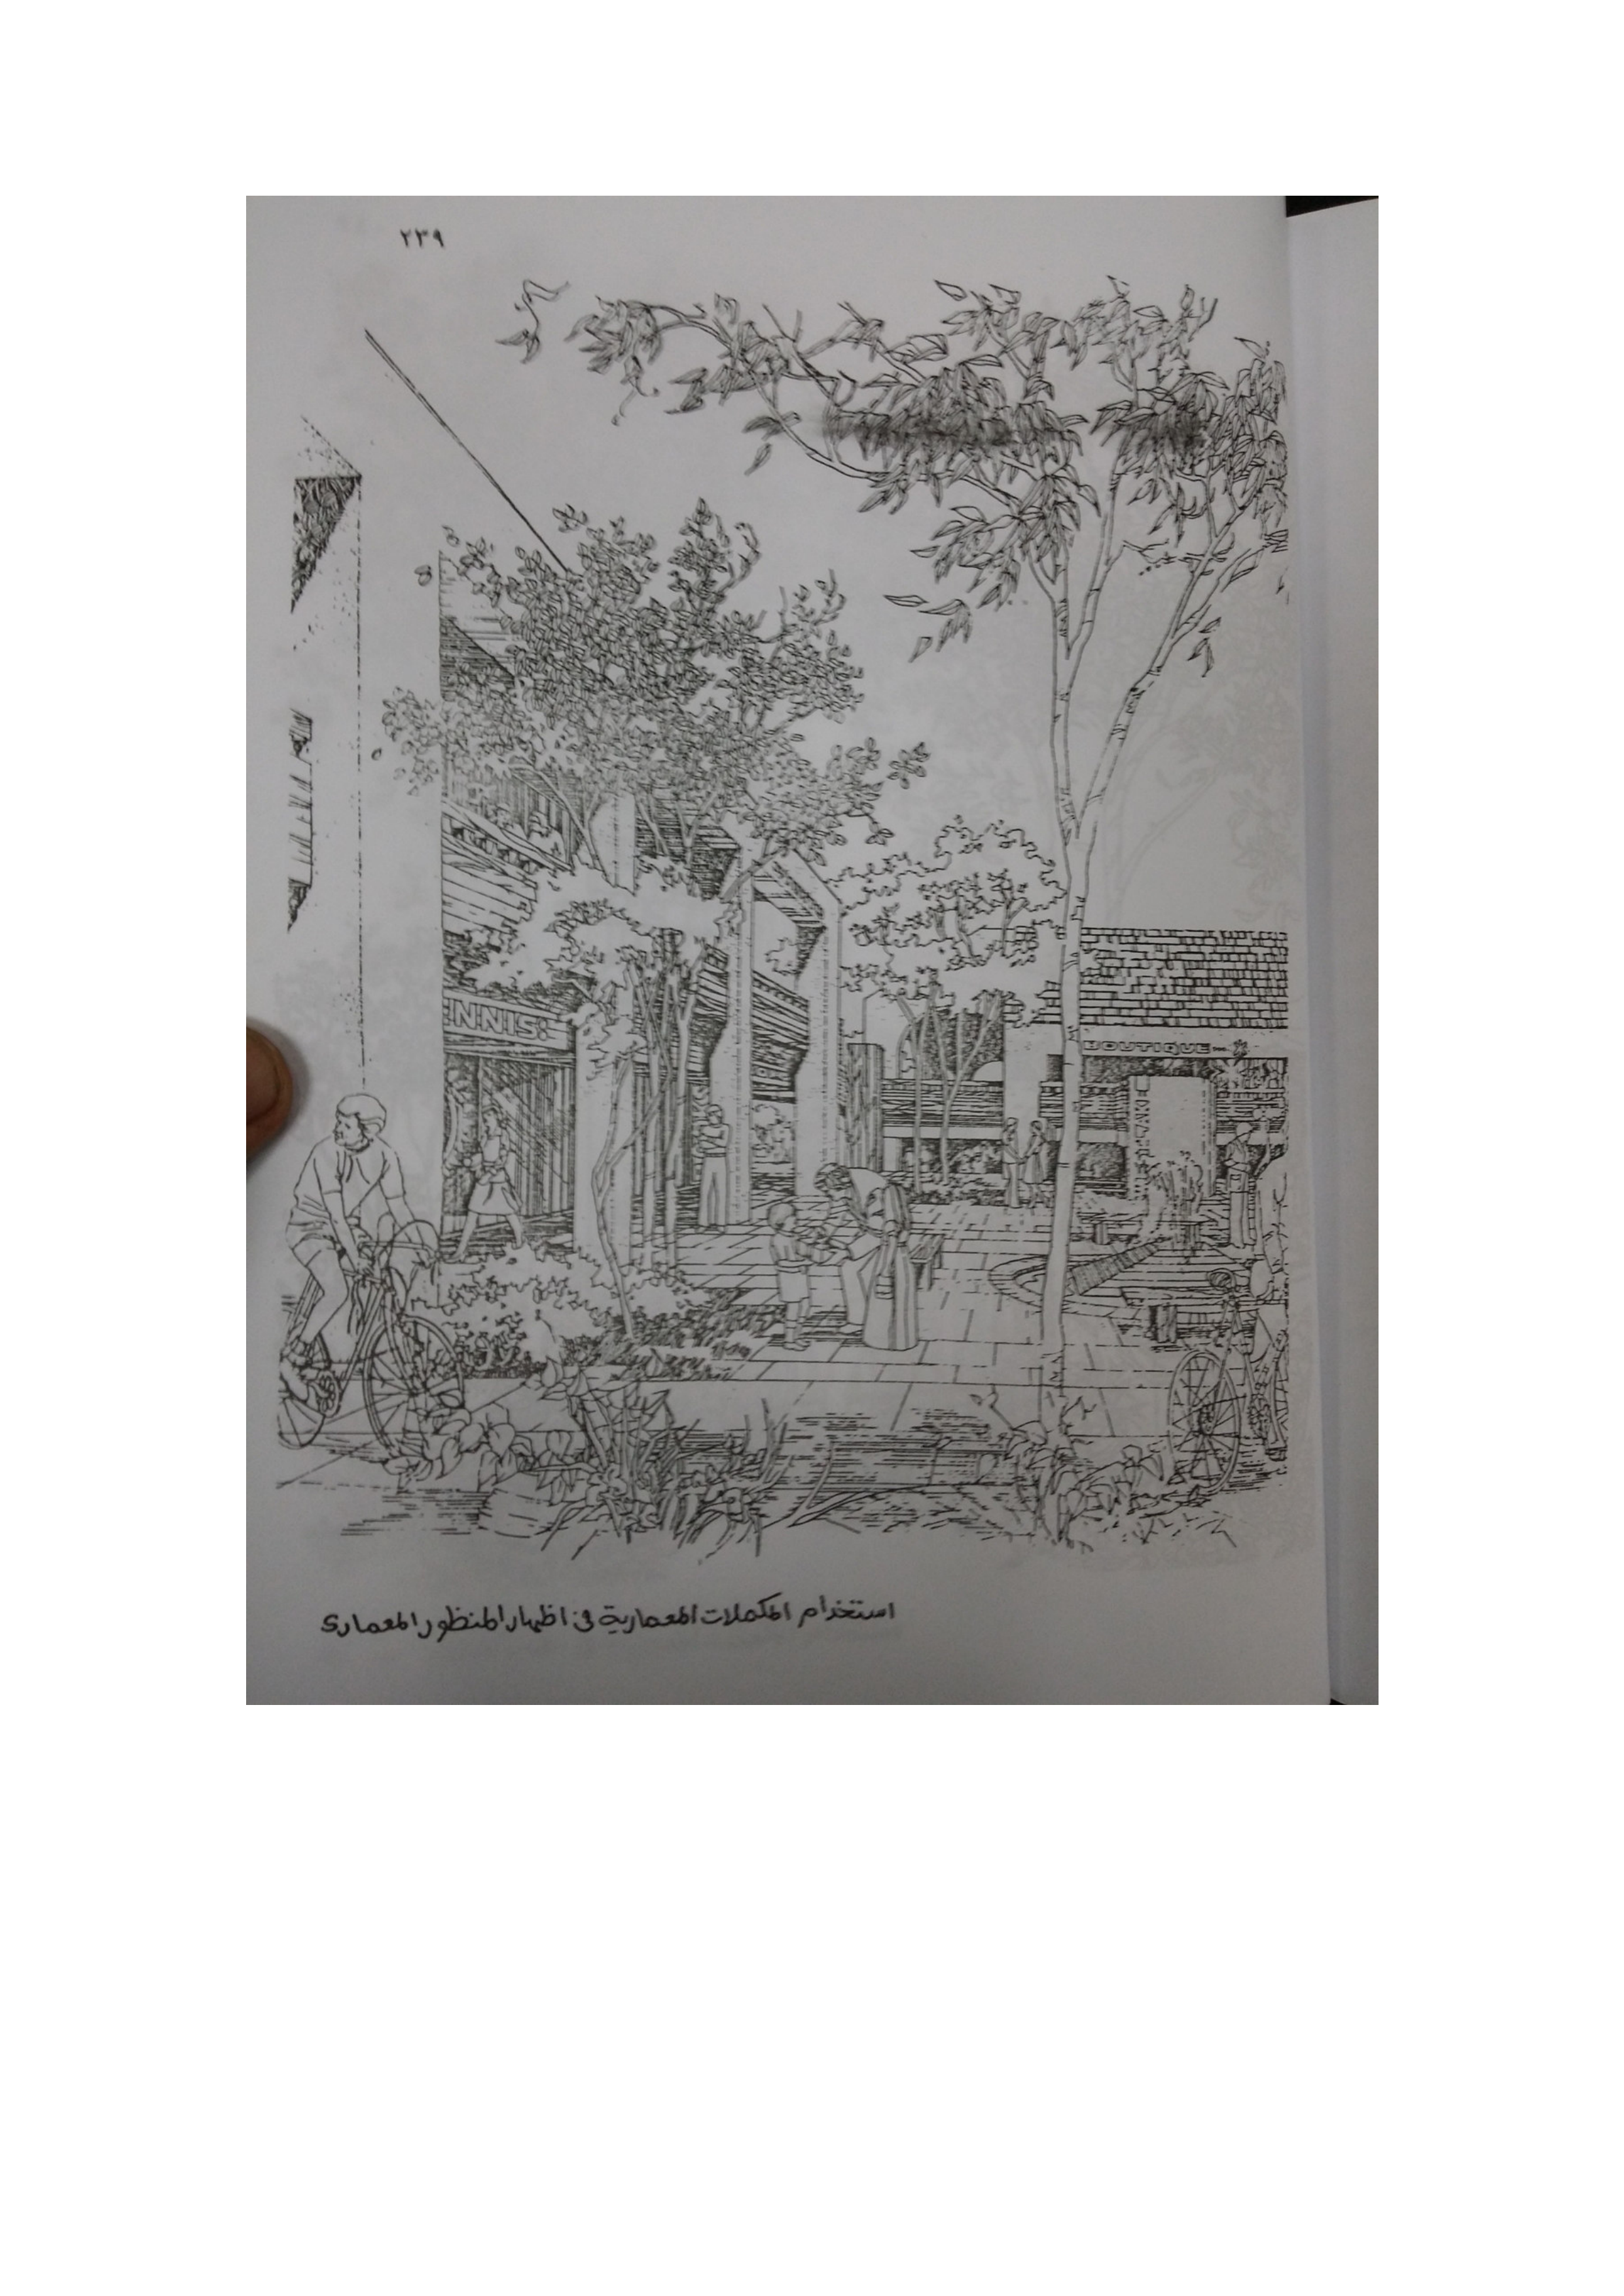 ٢٣٩
ENNIS:
BOUTIQUE
استخدام المكملات المعمارية فى اظهار المنظور المعمارى